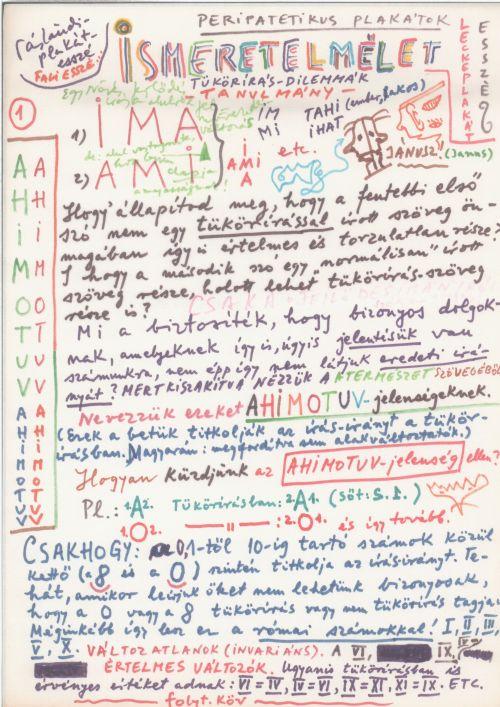 PERIPATETIKUS PLAKÁTOK
plakát-
esszé
FALI ESSZÉ
LECKEPLAKÁT
ESSZÉ
ISMERETELMÉLET
TÜKÖRÍRÁS-DILEMMÁK
TANULMÁNY
1
1) IMA
2) AMI
IM
MI
TAHI (ember, lakos)
IHAT
etc.
I
AMI
A
"JANUSZ" (Janus)
AHIMOTUVV AHIMOTUVV
AHIMOTUVV AHIMOTUVV
Hogy állapítod meg, hogy a fentebbi első
szó nem egy tükörírással írott szöveg ön-
magában így is értelmes és torzulatlan része?
S hogy a második szó egy "normálisan" írott
szöveg része, holott lehet tükörírás-szöveg
része is?
Mi a biztosíték, hogy bizonyos dolgok-
nak, amelyeknek így is, úgyis jelentésük van
számunkra, nem épp így nem látjuk eredeti irá-
nyát? MERT KISZAKÍTVA NÉZZÜK A TERMÉSZET SZÖVEGÉBŐL
Nevezzük ezeket AHIMOTUV-jelenségeknek.
(Ezek a betűk titkolják az írás-irányt a tükör-
írásban. Magyarán: megfordítva nem alakváltoztatók.)
Hogyan küzdjünk az AHIMOTUV-jelenség ellen?
Pl.: 1.A2. Tükörírásban: 2.A1. (Sőt: S.I.)
1.O2. — " — : 2.O1. és így tovább.
CSAKHOGY: a 0,1-től 10-ig tartó számok közül
kettő (a 8 és a 0) szintén titkolja az írásirányt. Te-
hát, amikor leírjuk őket nem lehetünk bizonyosak,
hogy a 0 vagy a 8 tükörírás vagy nem tükörírás tagja.
Méginkább így lesz ez a római számokkal! I, II, III,
V, X. VÁLTOZATLANOK (INVARIÁNS). A VI, IV, IX,
ÉRTELMES VÁLTOZÓK. Ugyanis tükörírásban is
érvényes értéket adnak: VI=IV, IV=VI, IX=XI, XI=IX. ETC.
folyt. köv